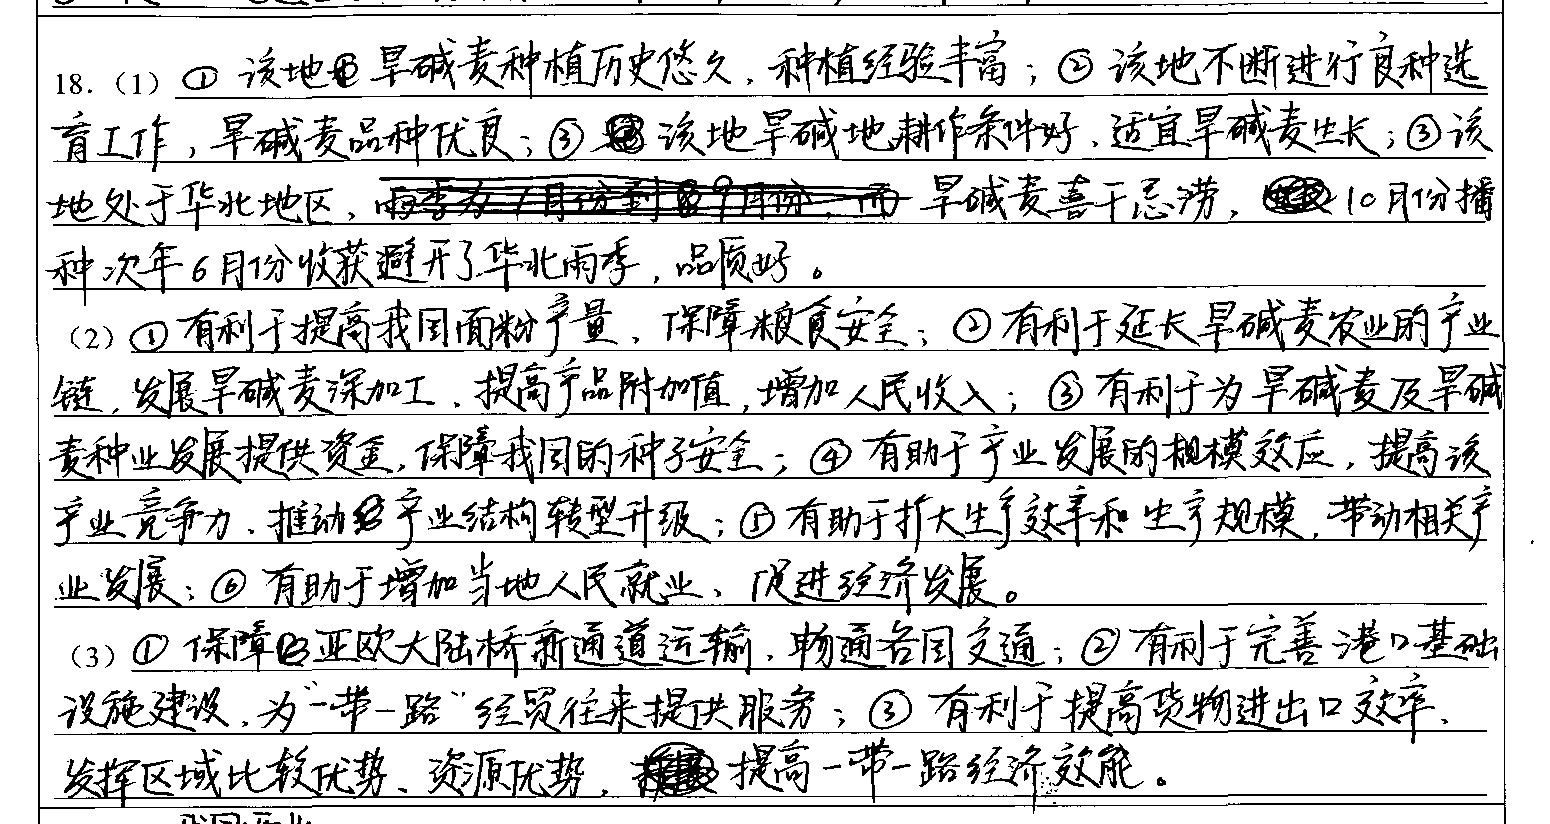 18.（1）① 该地旱碱麦种植历史悠久，种植经验丰富；② 该地不断进行良种选
育工作，旱碱麦品种优良；③ 该地旱碱地耕作条件好，适宜旱碱麦生长；③ 该
地处于华北地区，旱碱麦喜干忌涝，10月份播
种次年6月份收获避开了华北雨季，品质好。
（2）① 有利于提高我国面粉产量，保障粮食安全；② 有利于延长旱碱麦农业的产业
链，发展旱碱麦深加工，提高产品附加值，增加人民收入；③ 有利于为旱碱麦及旱碱
麦种业发展提供资金，保障我国的种子安全；④ 有助于产业发展的规模效应，提高该
产业竞争力，推动产业结构转型升级；⑤ 有助于扩大生产效率和生产规模，带动相关产
业发展；⑥ 有助于增加当地人民就业，促进经济发展。
（3）① 保障亚欧大陆桥新通道运输，畅通各国交通；② 有利于完善港口基础
设施建设，为“一带一路”经贸往来提供服务；③ 有利于提高货物进出口效率，
发挥区域比较优势、资源优势，提高一带一路经济效能。